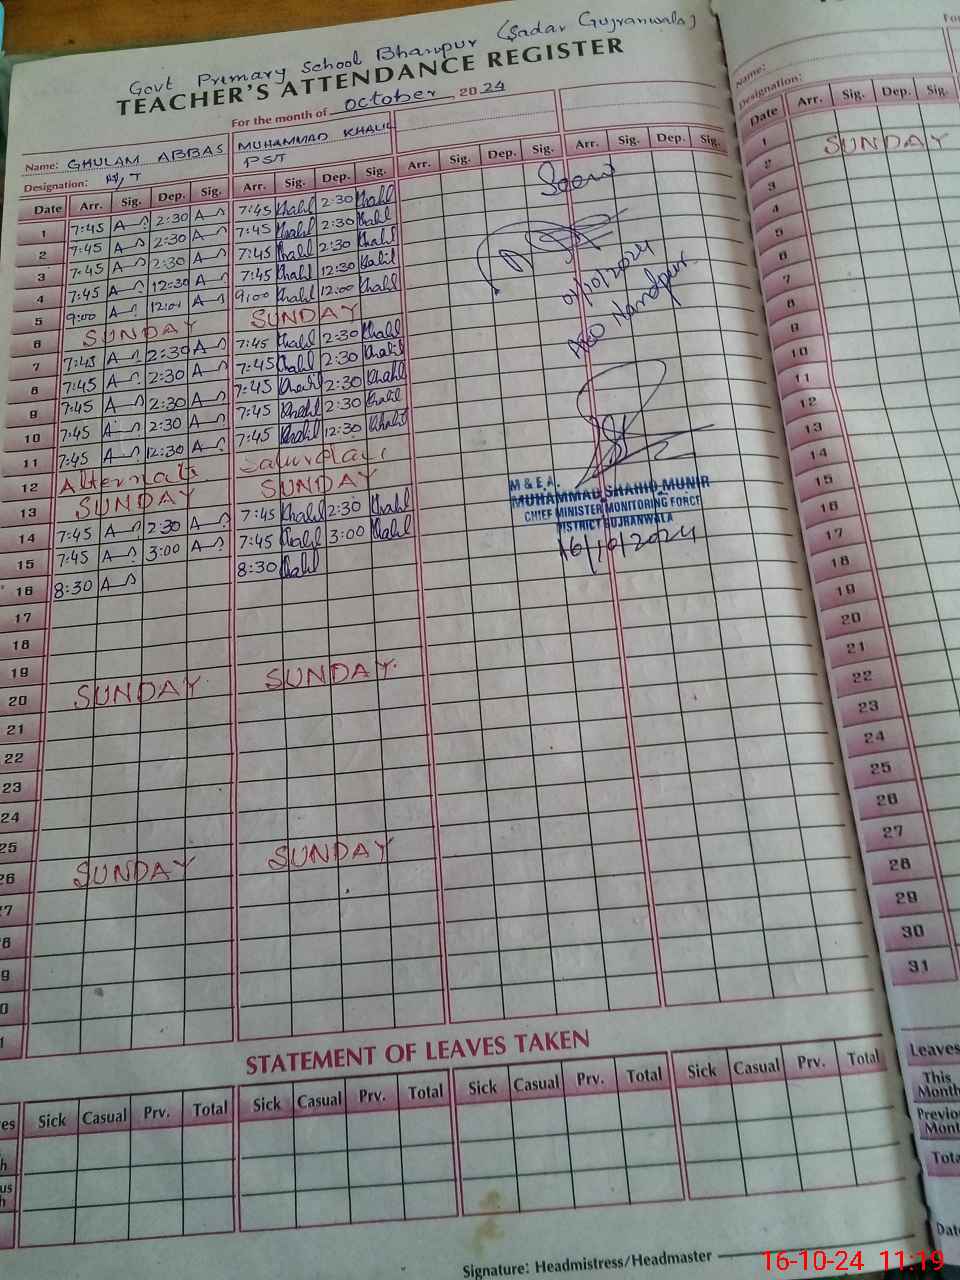 Govt Primary School Bhanpur (Sadar Gujranwala)
TEACHER'S ATTENDANCE REGISTER
For the month of October 2024
Name: GHULAM ABBAS MUHAMMAD KHALIL
Designation: PST
Date Arr. Sig. Dep. Sig. Arr. Sig. Dep. Sig. Arr. Sig. Dep. Sig. Arr. Sig. Dep. Sig.
1 7:45 2:30 7:45 Khalil 2:30 Khalil
2 7:45 2:30 7:45 Khalil 2:30 Khalil
3 7:45 2:30 7:45 Khalil 2:30 Khalil
4 7:45 12:30 7:45 Khalil 12:30 Khalil
5 9:00 12:00 9:00 Khalil 12:00 Khalil
6 SUNDAY SUNDAY
7 7:45 2:30 7:45 Khalil 2:30 Khalil
8 7:45 2:30 7:45 Khalil 2:30 Khalil
9 7:45 2:30 7:45 Khalil 2:30 Khalil
10 7:45 2:30 7:45 Khalil 2:30 Khalil
11 7:45 12:30 7:45 Khalil 12:30 Khalil
12 Alternate Saturday
13 SUNDAY SUNDAY
14 7:45 2:30 7:45 Khalil 2:30 Khalil
15 7:45 3:00 7:45 Khalil 3:00 Khalil
16 8:30 8:30 Khalil
17
18
19
20 SUNDAY SUNDAY
21
22
23
24
25
26 SUNDAY SUNDAY
7
8
9
0
1
Seen
01/10/2024
AEO Nandpur
M & E.A.
MUHAMMAD SHAHID MUNIR
CHIEF MINISTER MONITORING FORCE
DISTRICT GUJRANWALA
16/10/2024
STATEMENT OF LEAVES TAKEN
Sick Casual Prv. Total Sick Casual Prv. Total Sick Casual Prv. Total Sick Casual Prv. Total
Signature: Headmistress/Headmaster
Name:
Designation:
Date Arr. Sig. Dep. Sig.
1 SUNDAY
2
3
4
5
6
7
8
9
10
11
12
13
14
15
16
17
18
19
20
21
22
23
24
25
26
27
28
29
30
31
Leaves
This
Month
16-10-24 11:19